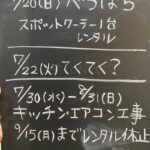 7/20(日)べつばら
スポットクーラー1台
レンタル
7/22(火)てくてく?
7/30(水)~8/31(日)
キッチン・エアコン工事
9/15(月)までレンタル休止